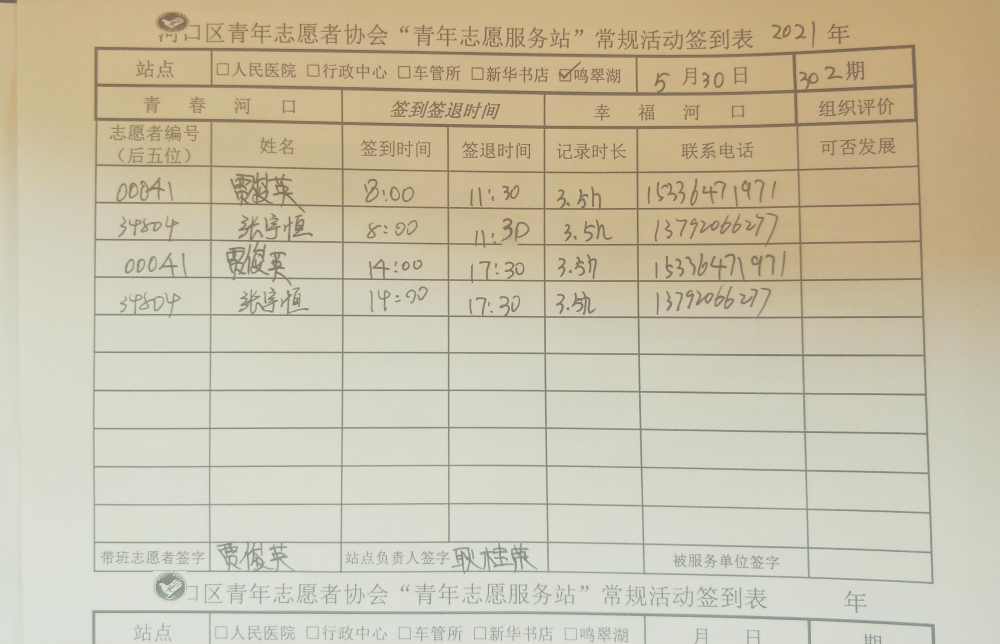 河口区青年志愿者协会“青年志愿服务站”常规活动签到表 2021年
站点 □人民医院 □行政中心 □车管所 □新华书店 ☑鸣翠湖 5月30日 302期
青春河口 签到签退时间 幸福河口 组织评价
志愿者编号（后五位） 姓名 签到时间 签退时间 记录时长 联系电话 可否发展
00041 贾俊英 8:00 11:30 3.5h 15336471971
34804 张宇恒 8:00 11:30 3.5h 13792066277
00041 贾俊英 14:00 17:30 3.5h 15336471971
34804 张宇恒 14:00 17:30 3.5h 13792066277
带班志愿者签字 贾俊英 站点负责人签字 耿桂荣 被服务单位签字
口区青年志愿者协会“青年志愿服务站”常规活动签到表 年
站点 □人民医院 □行政中心 □车管所 □新华书店 □鸣翠湖 月 日 期